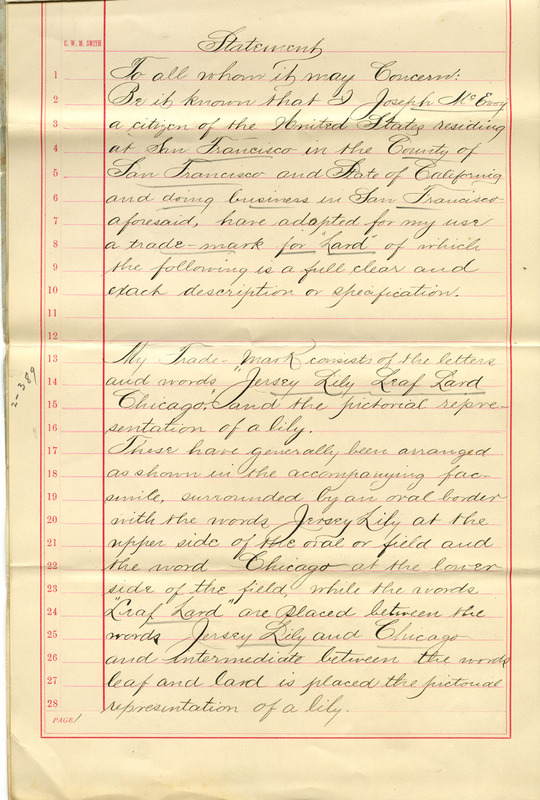 C. W. M. SMITH
Statement
1 To all whom it may Concern:
2 Be it known that I Joseph McEvoy
3 a citizen of the United States residing
4 at San Francisco in the County of
5 San Francisco and State of California
6 and doing business in San Francisco
7 aforesaid, have adopted for my use
8 a trade-mark for "Lard" of which
9 the following is a full clear and
10 exact description or specification.
11
12
13 My Trade-Mark consists of the letters
14 and words, "Jersey Lily Leaf Lard
15 Chicago," and the pictorial repre-
16 sentation of a lily.
17 These have generally been arranged
18 as shown in the accompanying fac-
19 simile, surrounded by an oval border
20 with the words Jersey Lily at the
21 upper side of the oval or field and
22 the word Chicago at the lower
23 side of the field, while the words
24 "Leaf Lard" are placed between the
25 words Jersey Lily and Chicago
26 and intermediate between the words
27 leaf and lard is placed the pictorial
28 representation of a lily.
PAGE 1
2-389